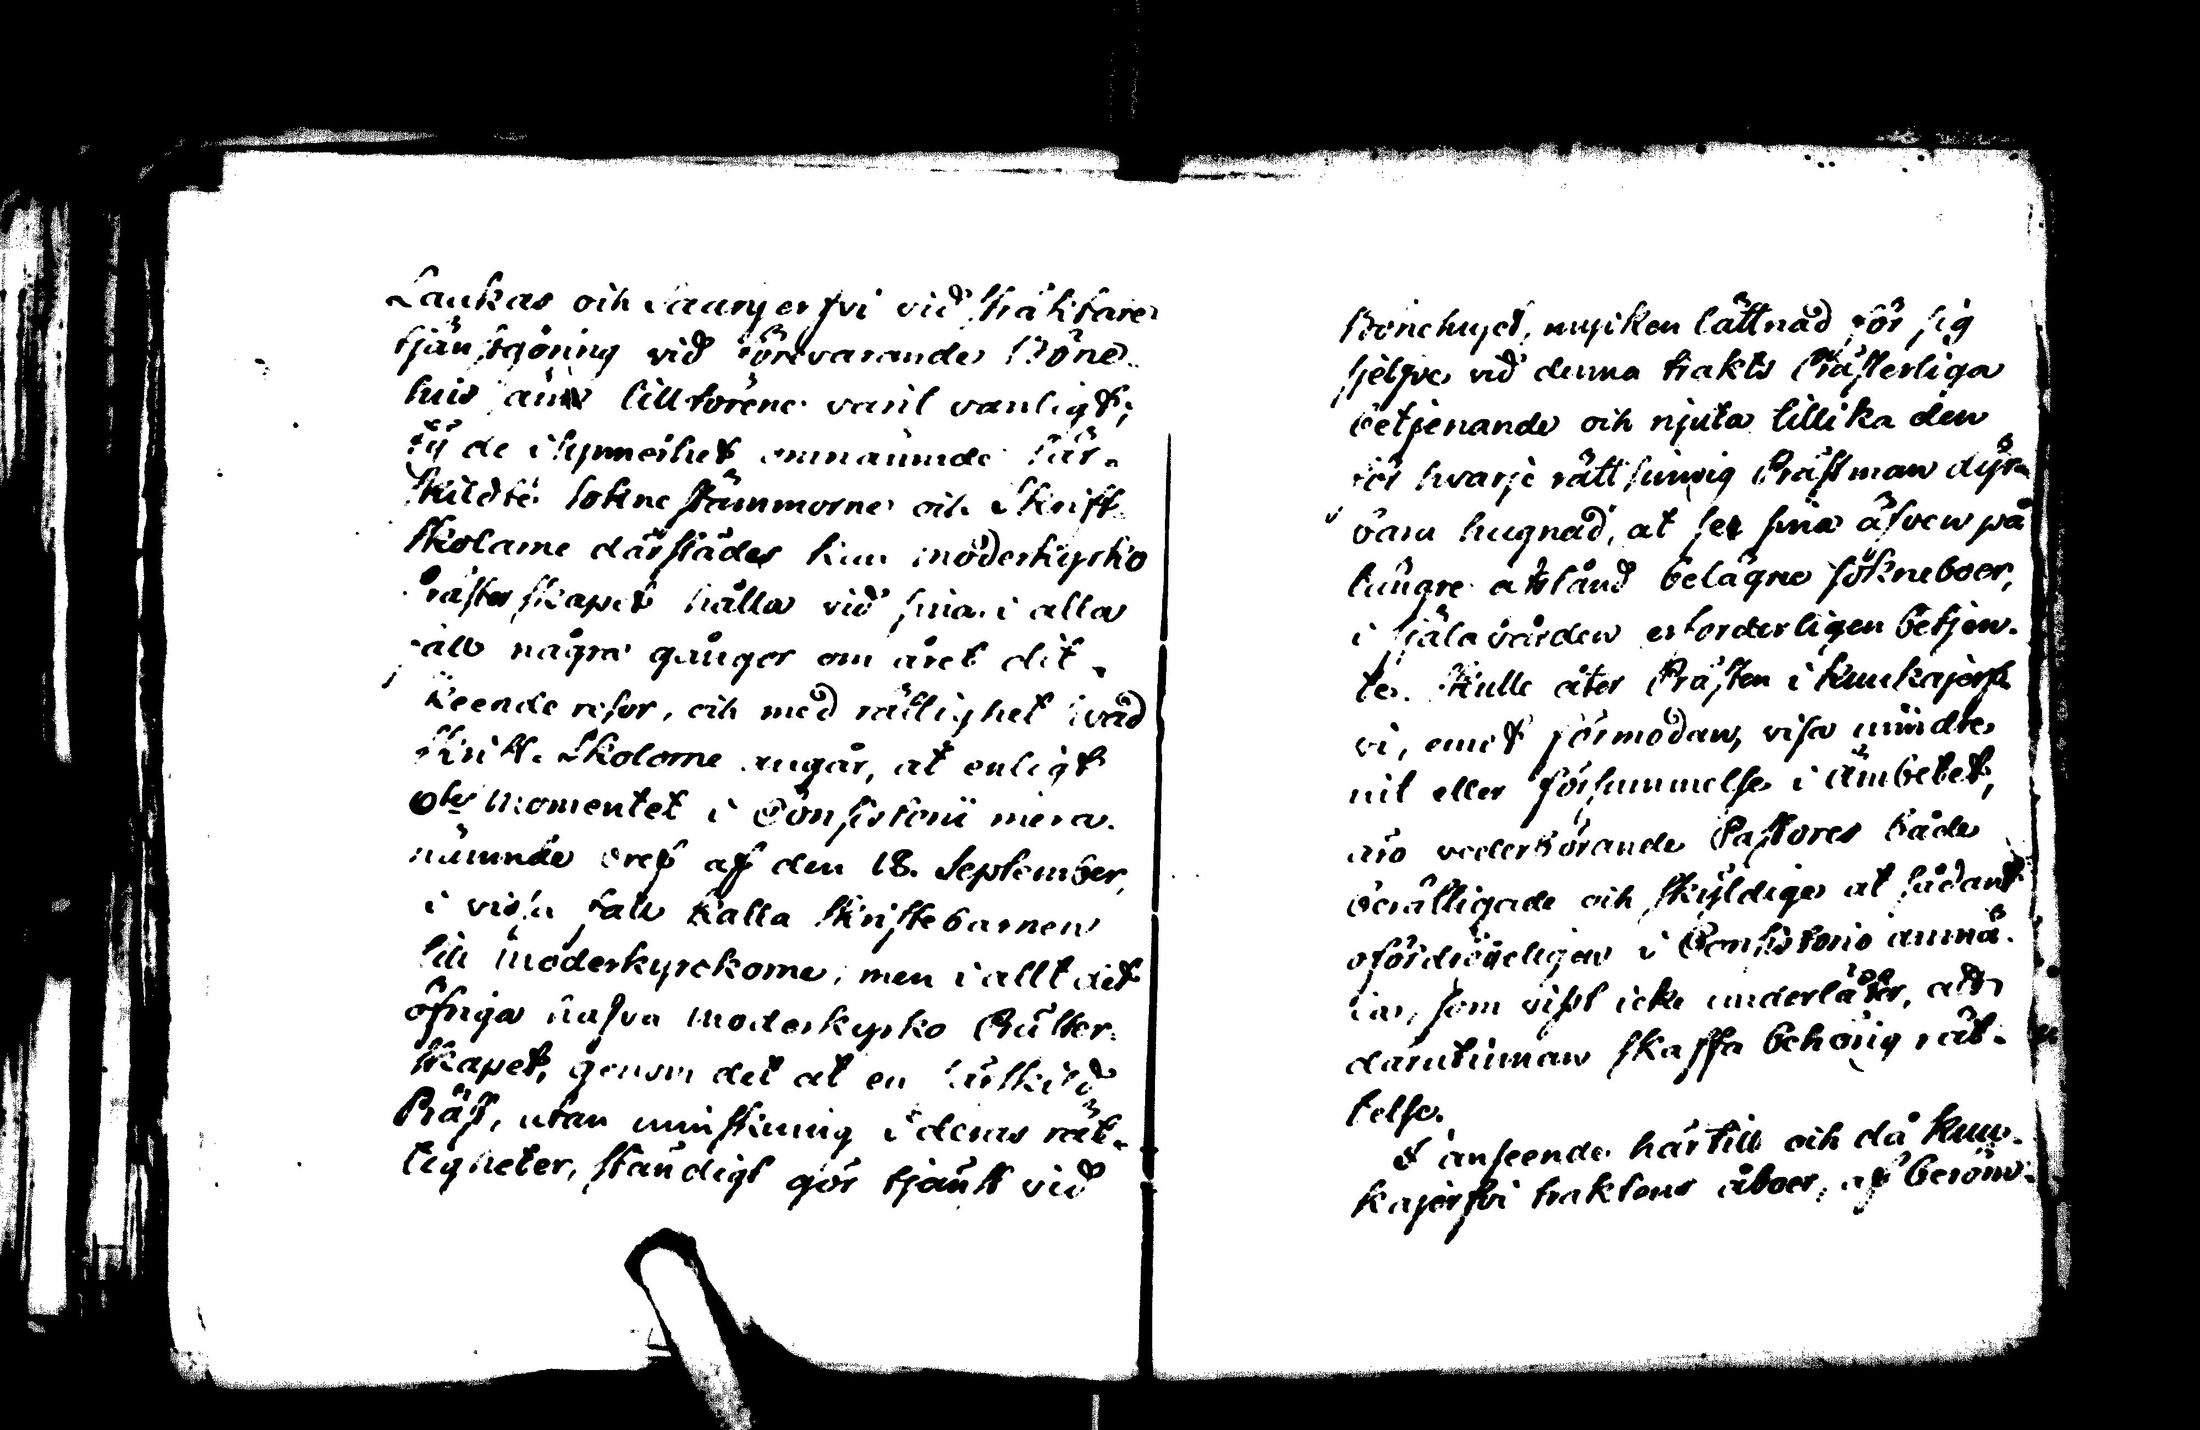 Laukas och Saarijerfvi vid sträktare
tjänstgöring vid förevarande Böne-
huis änn tillförene varit vanligt;
ty de i synnerhet omnämnde sär-
skildte sokne stämmorne och Skrift
skolarne därstädes kun moderkyrko
Prästerskapet hålla vid sina i alla
fall några gånger om året dit
skeende resor, och med rättighet hvad
Skrift-Skolorne angår, at enligt
6te Momentet i Consistorii mera-
nämnde bref af den 18. September,
i vissa fall kalla Skriftebarnen
till moderkyrckorne, men i allt det
öfriga hafva moderkyrko Präster-
skapet, genom det at en särskild
Präst, utan minskning i deras rät-
tigheter, ständigt gör tjänst vid
Bönehuset, mycken lättnad för sig
sjelfve vid denna trakts Prästerliga
betjenande och njuta tillika den
för hvarje rättsinnig Prästman dyr-
bara hugnad, at se sina äfven på
längre afstånd belägne sokneboer,
i själavården erforderligen betjen-
te. Skulle åter Prästen i Kuukajerf-
vi, emot förmodan, visa mindre
nit eller försummelse i ämbetet,
äro vederbörande Pastores både
berättigade och skyldige at sådant
ofördröjeligen i Consistorio anmä-
la, som visst icke underlåter, att
darutinnan skaffa behörig rät-
telse.
I anseende härtill och då Kuu-
kajerfvi traktens åboer, af beröm-